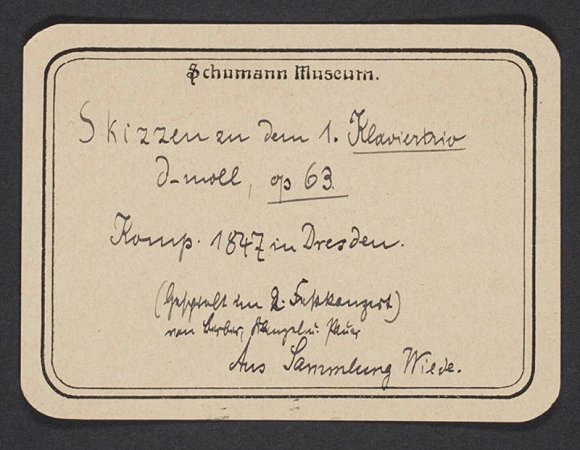 Schumann Museum.
Skizzen zu dem 1. Klaviertrio
d-moll, op 63.
Komp. 1847 in Dresden.
(Gespielt im 2. Festkonzert)
von Berber, Stangel u. Pauer
Aus Sammlung Wiede.